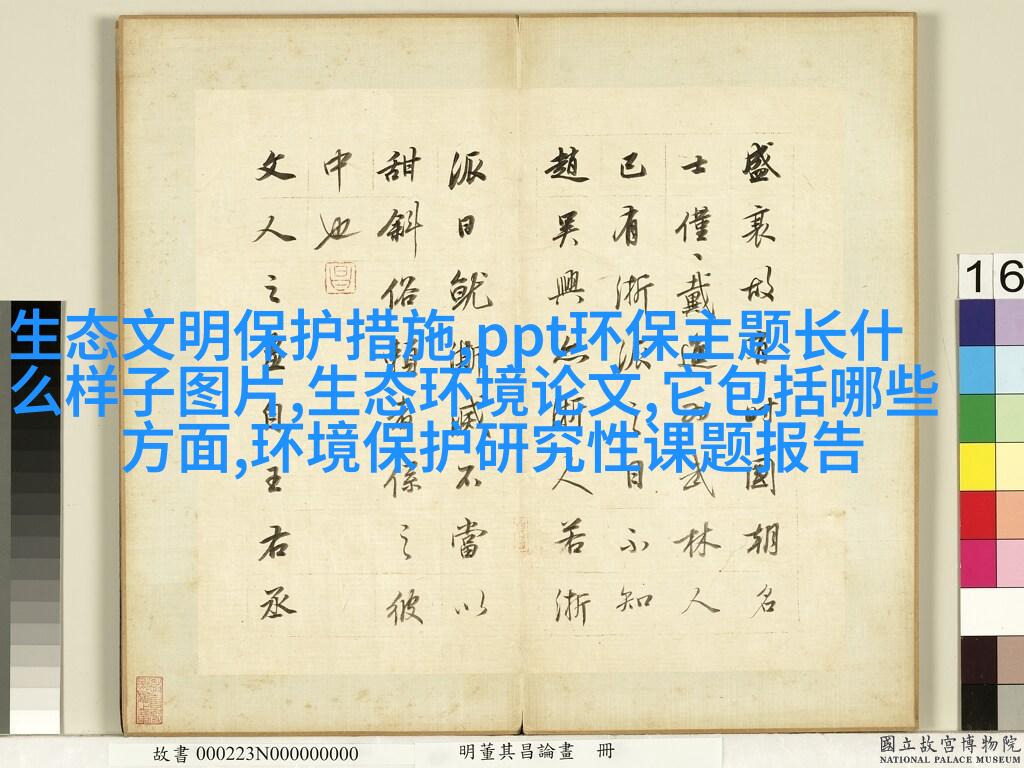 生态文明保护措施,ppt环保主题长什
么样子图片,生态环境论文,它包括哪些
方面,环境保护研究性课题报告
盛衰故有時國朝名
士僅戴進為武林人
已有浙派之目不知
趙吳興亦浙人若浙
派日就澌滅不當以
甜斜俗賴者係之彼
中也
文人之畫自王右丞
16
故書 000223N000000000
明董其昌論畫 冊
國立故宮博物院
NATIONAL PALACE MUSEUM